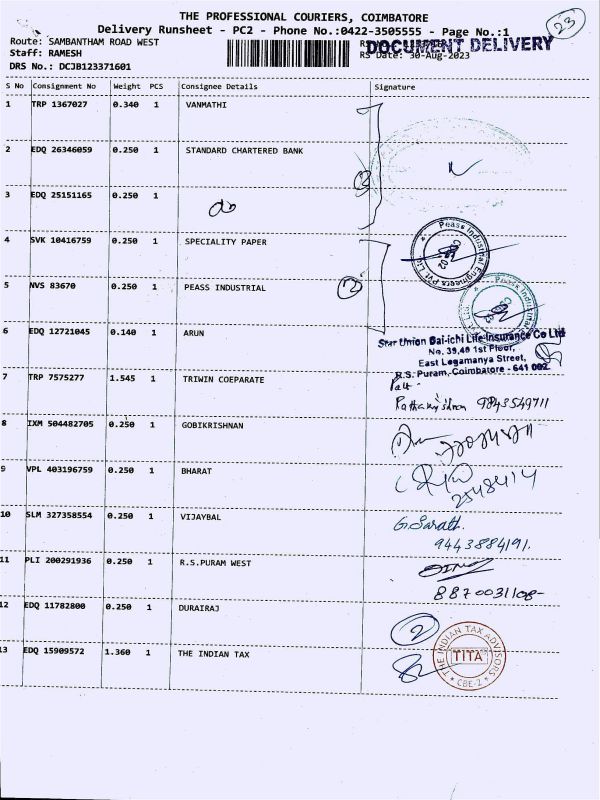 THE PROFESSIONAL COURIERS, COIMBATORE
23
Delivery Runsheet - PC2 - Phone No.:0422-3505555 - Page No.:1
Route: SAMBANTHAM ROAD WEST
DOCUMENT DELIVERY
Staff: RAMESH
RS Date: 30-Aug-2023
DRS No.: DCJB123371601
S No Consignment No Weight PCS Consignee Details Signature
1 TRP 1367027 0.340 1 VANMATHI
2 EDQ 26346059 0.250 1 STANDARD CHARTERED BANK
3 EDQ 25151165 0.250 1 do
3
4 SVK 10416759 0.250 1 SPECIALITY PAPER
Peass Industrial Engineers Pvt Ltd
5 NVS 83670 0.250 1 PEASS INDUSTRIAL
2
Peass Industrial
6 EDQ 12721045 0.140 1 ARUN
Star Union Dai-ichi Life Insurance Co Ltd
No. 39,40 1st Floor,
East Logamanya Street,
R.S. Puram, Coimbatore - 641 002.
7 TRP 7575277 1.545 1 TRIWIN COEPARATE
9843549711
8 IXM 504482705 0.250 1 GOBIKRISHNAN
9 VPL 403196759 0.250 1 BHARAT
2548414
10 SLM 327358554 0.250 1 VIJAYBAL
G. Sarath.
9443884191.
11 PLI 200291936 0.250 1 R.S.PURAM WEST
8870031108-
12 EDQ 11782800 0.250 1 DURAIRAJ
2
13 EDQ 15909572 1.360 1 THE INDIAN TAX
THE INDIAN TAX ADVISORS
TITA
CBE-2